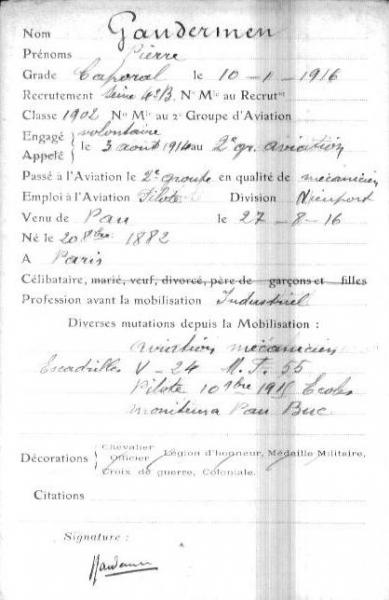 Nom Gaudermen
Prénoms Pierre
Grade Caporal le 10 - 1 - 1916
Recrutement Seine 4e B. N° Mle au Recrutnt
Classe 1902 N° Mle au 2e Groupe d'Aviation
Engagé volontaire
Appelé le 3 août 1914 au 2e gr. aviation
Passé à l'Aviation le 2e groupe en qualité de mécanicien
Emploi à l'Aviation Pilote Division Nieuport
Venu de Pau le 27 - 8 - 16
Né le 20 8bre 1882
A Paris
Célibataire, marié, veuf, divorcé, père de garçons et filles
Profession avant la mobilisation Industriel
Diverses mutations depuis la Mobilisation :
aviation mécanicien
Escadrilles V - 24 M. F. 55
Pilote 10 1915 Ecoles
moniteur à Pau Buc
Chevalier
Décorations Officier Légion d'honneur, Médaille Militaire,
Croix de guerre, Coloniale.
Citations
Signature :